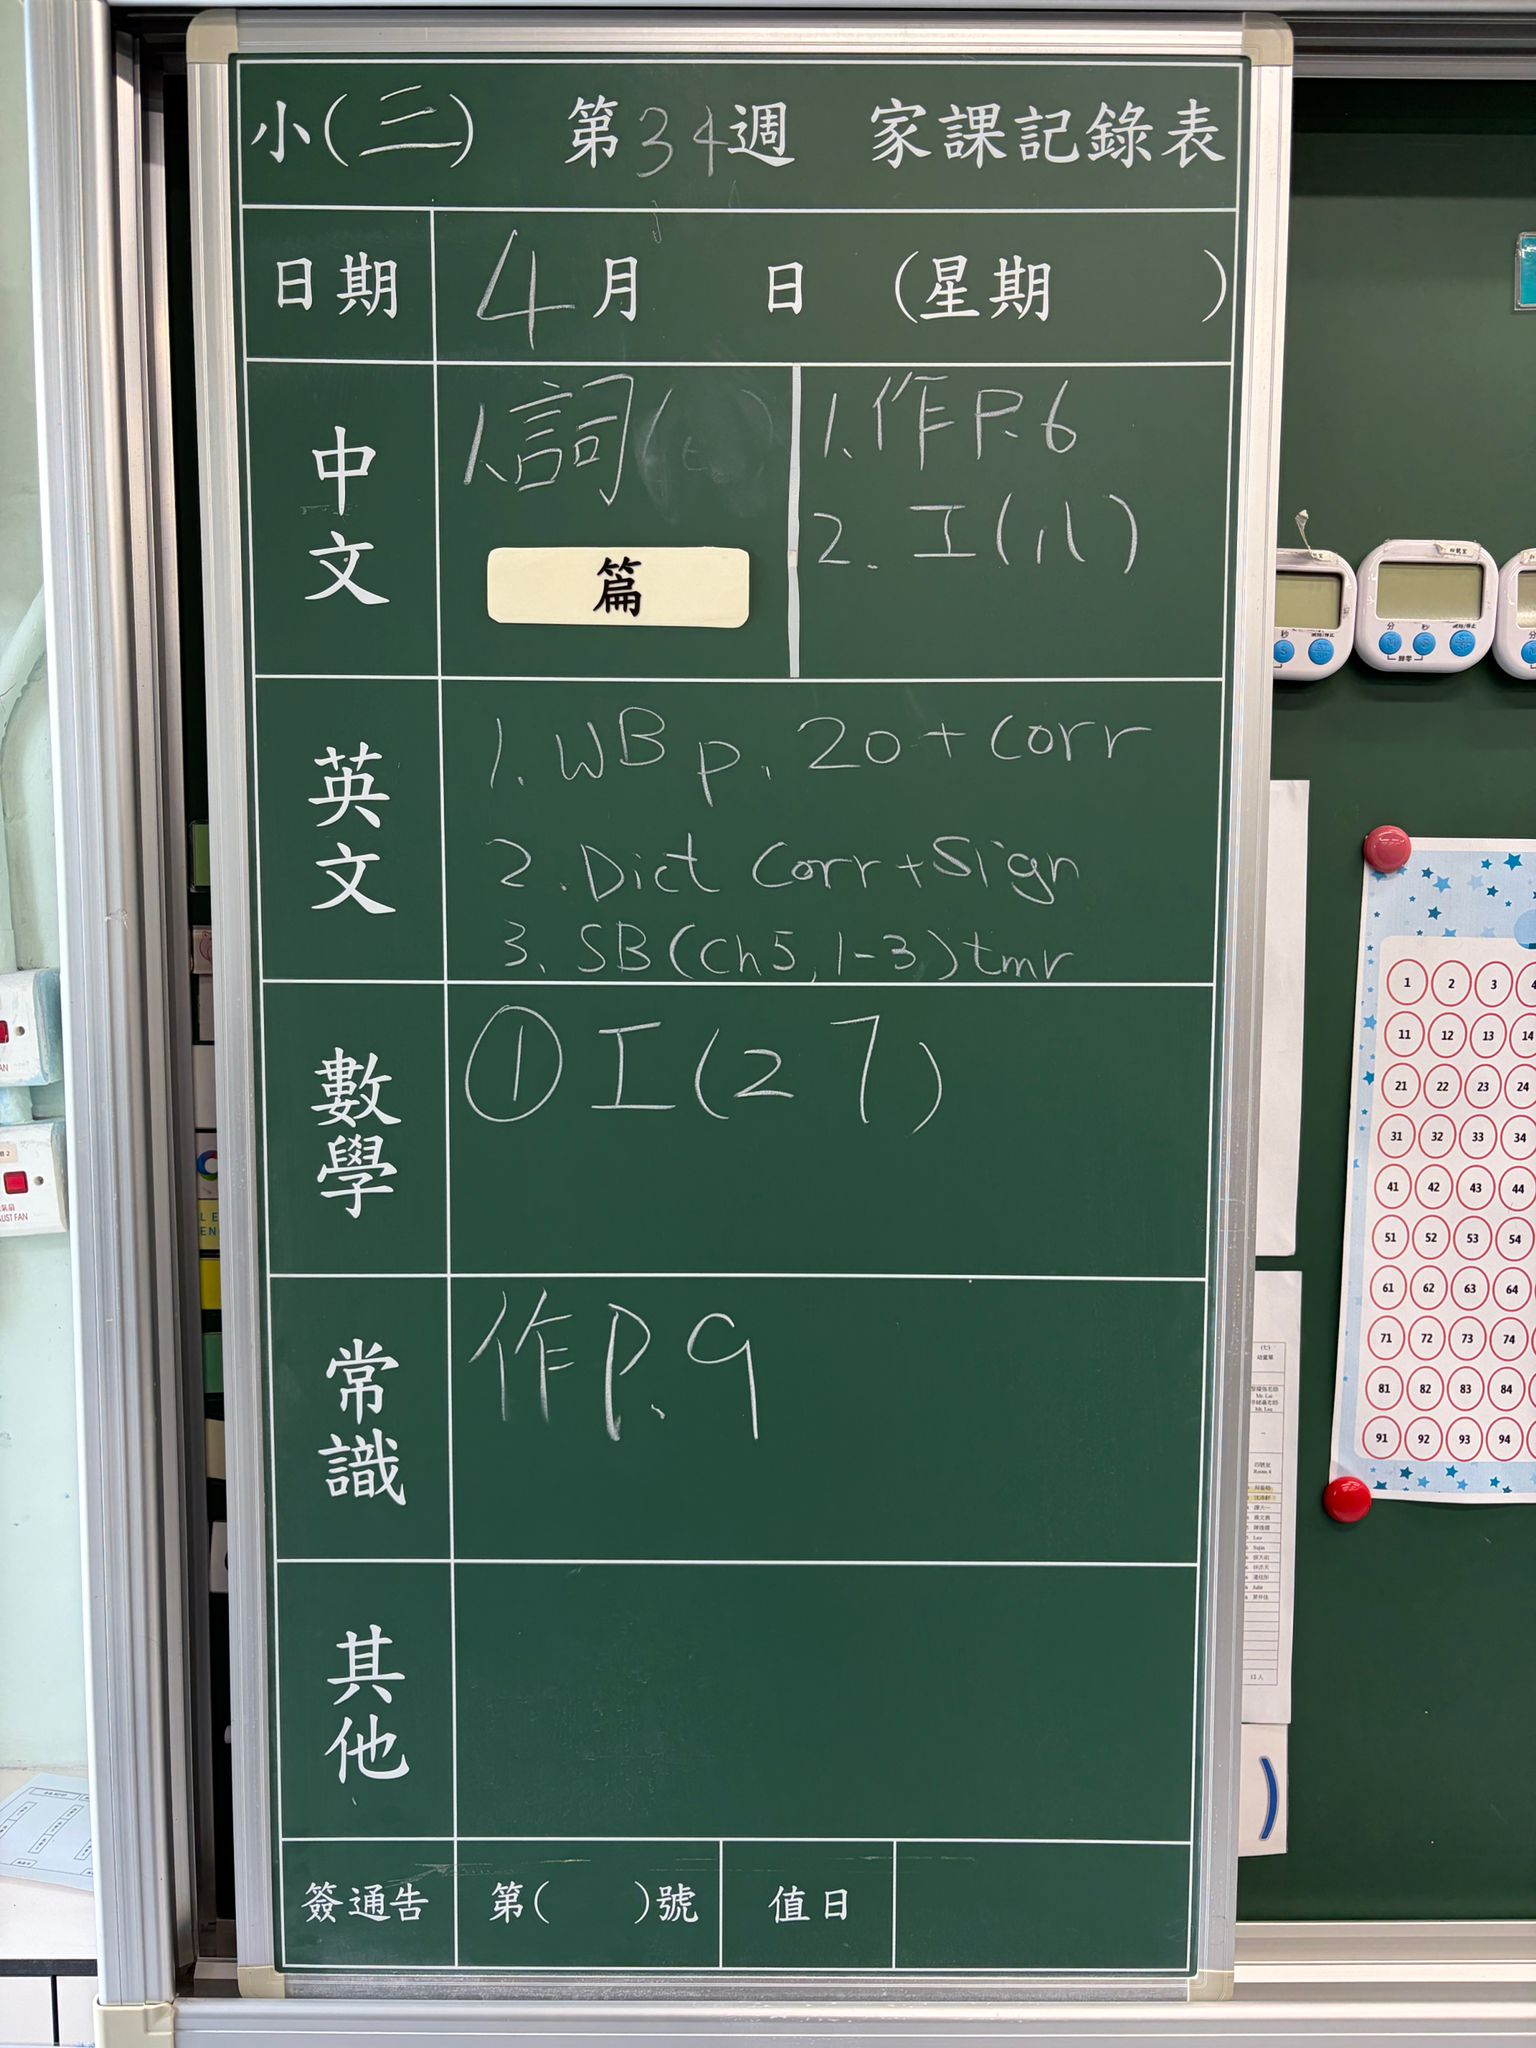 小(三) 第34週 家課記錄表
日期 4月 日 (星期 )
中文
1.詞( )
篇
1.作P.6
2.工(八)
英文
1. WB p. 20 + Corr
2. Dict Corr + Sign
3. SB (Ch5, 1-3) tmr
數學
① 工(27)
常識
作P.9
其他
簽通告 第( )號 值日
分 秒
M S
歸零
1 2 3 4
11 12 13 14
21 22 23 24
31 32 33 34
41 42 43 44
51 52 53 54
61 62 63 64
71 72 73 74
81 82 83 84
91 92 93 94
Room 4
Leo
Julie
12人